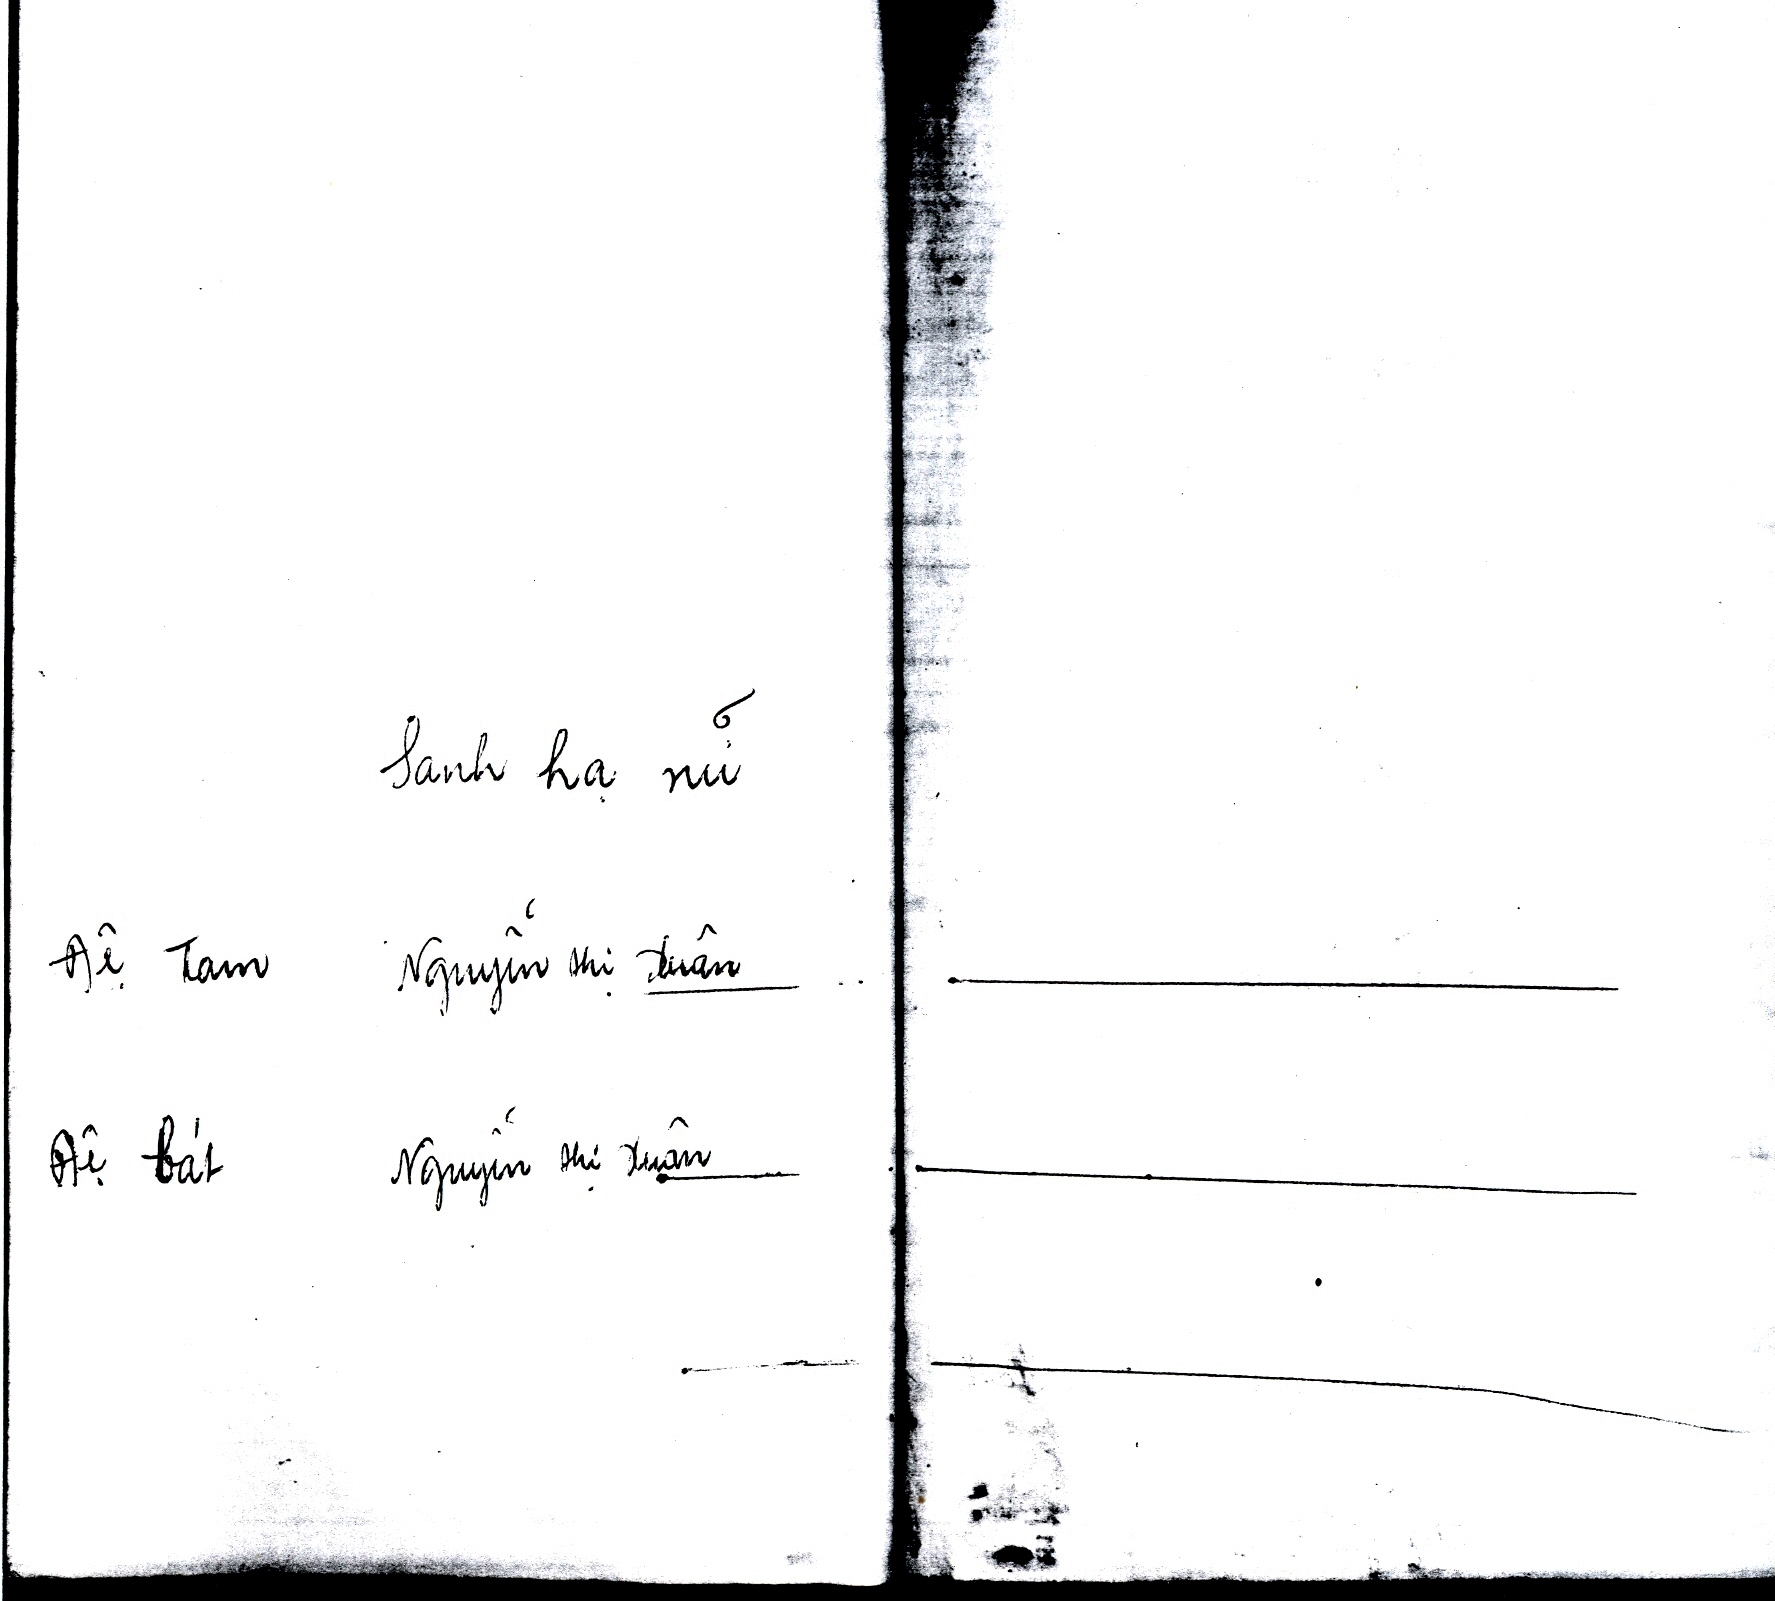 Sanh hạ nữ
Đệ Tam Nguyễn thị Xuân
Đệ bát Nguyễn thị Xuân